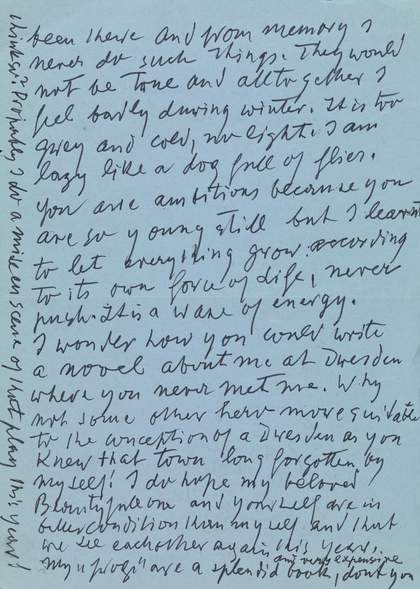 been there and from memory I
never do such things. They would
not be true and alltogether I
feel badly during winter. It is too
grey and cold, no light. I am
lazy like a dog full of flies.
You are ambitious because you
are so young still but I learnt
to let everything grow according
to its own force of life, never
push. It is a waze of energy.
I wonder how you could write
a novel about me at Dresden
where you never met me. Why
not some other hero more equivable
to the conception of a Dresden as you
Knew that town long forgotten by
myself! I do hope my beloved
Beautyfule one and yourself are in
better condition than myself and that
we see eachother again this year.
My "progi" are a splendid and very expensive book, dont you
think so? Probably I do a mise en scene of that play this year!